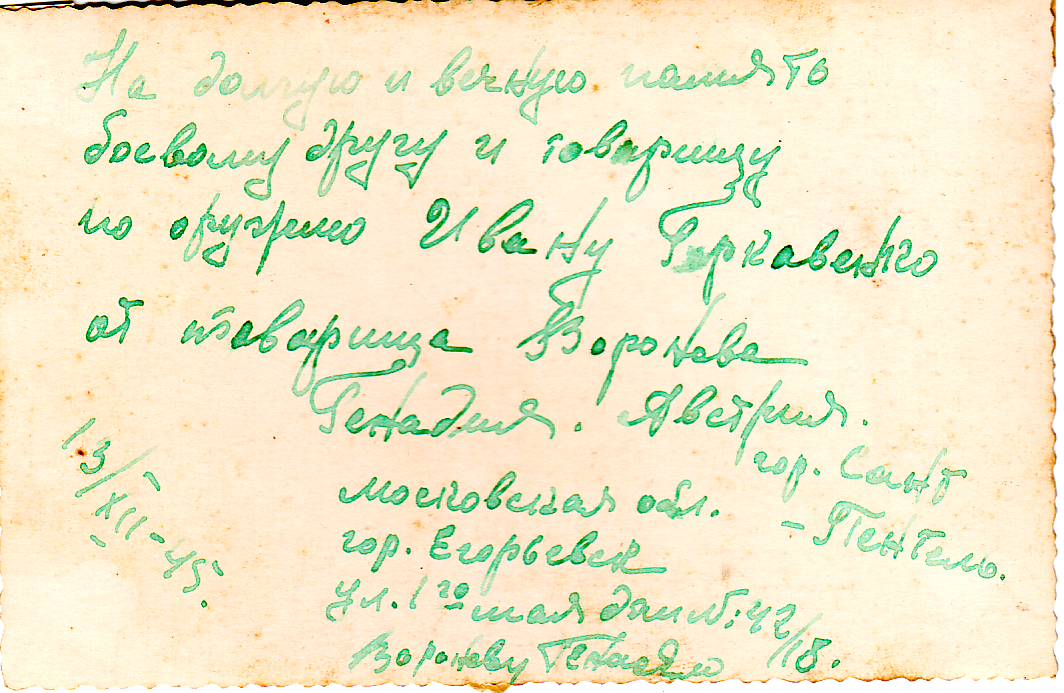 На долгую и вечную память
боевому другу и товарищу
по оружию Ивану Гаркавенко
от товарища Воронова
Генадия. Австрия.
гор. Сант
-Пентель.
13/XII-45.
Московская обл.
гор. Егорьевск
ул. 1го мая дом №: 42/18.
Воронову Генадию